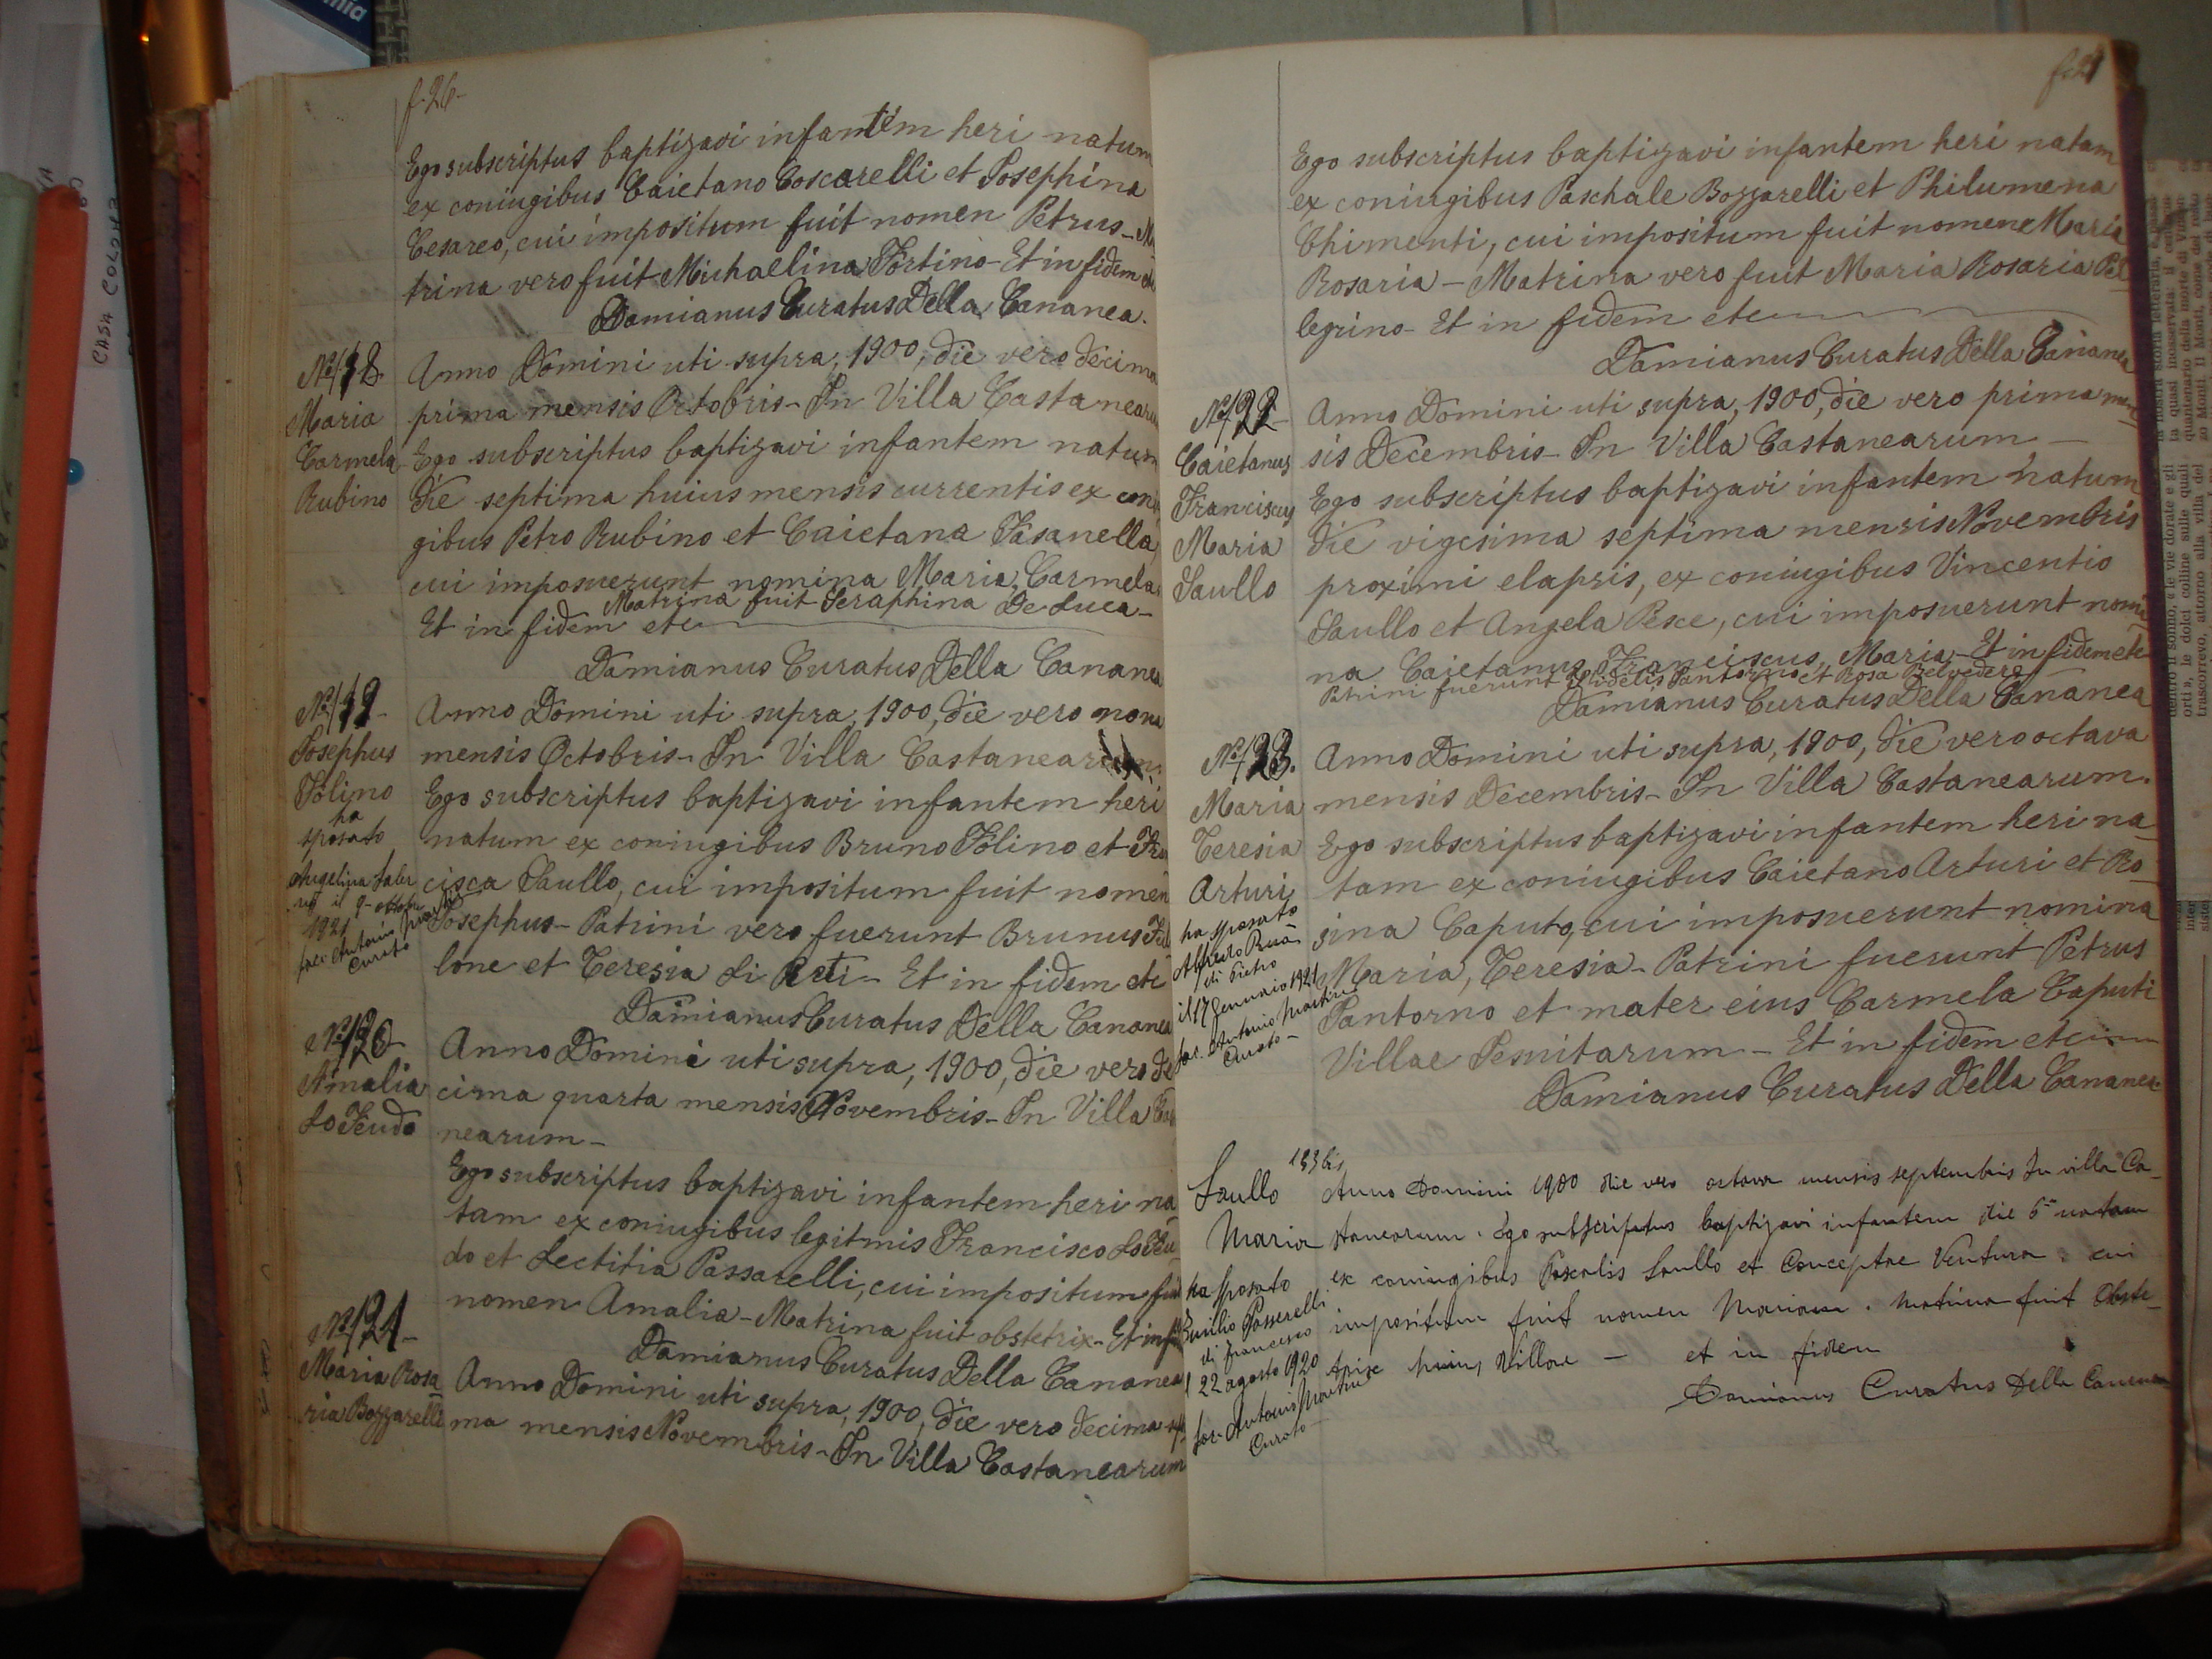 f. 26-
Ego subscriptus baptizavi infantem heri natum
ex coniugibus Caietano Coscarelli et Josephina
Cesareo, cui impositum fuit nomen Petrus - Ma
trina vero fuit Michaelina Fortino - Et in fidem etc
Damianus Curatus Della Cananea.
No 118.
Maria
Carmela
Rubino
Anno Domini uti supra, 1900, die vero decima
prima mensis Octobris - In Villa Castanearum
Ego subscriptus baptizavi infantem natum
die septima huius mensis currentis ex coniu
gibus Petro Rubino et Caietana Fasanella,
cui imposuerunt nomina Maria, Carmela.
Matrina fuit Seraphina De Luca -
Et in fidem etc
Damianus Curatus Della Cananea
No 119-
Josephus
Folino
ha
sposato
Angelina Saler
no il 9- ottobre
1921
sac. Antonio Martire
Curato
Anno Domini uti supra, 1900, die vero nona
mensis Octobris - In Villa Castanearum
Ego subscriptus baptizavi infantem heri
natum ex coniugibus Bruno Folino et Fran
cisca Saullo, cui impositum fuit nomen
Josephus - Patrini vero fuerunt Brunus
lone et Teresia Li - Et in fidem etc
Damianus Curatus Della Cananea
No 120-
Amalia
Lo Feudo
Anno Domini uti supra, 1900, die vero de
cima quarta mensis Novembris - In Villa Casta
nearum -
Ego subscriptus baptizavi infantem heri na
tam ex coniugibus legitmis Francisco Lo Feu
do et Lectitia Passarelli, cui impositum fuit
nomen Amalia - Matrina fuit obstetrix - Et in
Damianus Curatus Della Cananea
No 121-
Maria Rosa
ria Bozzarelli
Anno Domini uti supra, 1900, die vero decima
ma mensis Novembris - In Villa Castanearum
Ego subscriptus baptizavi infantem heri natam
ex coniugibus Paschale Bozzarelli et Philumena
Chimenti, cui impositum fuit nomen Maria
Rosaria - Matrina vero fuit Maria Rosaria Pel
legrino - Et in fidem etc
Damianus Curatus Della Cananea
No 122-
Caietanus
Franciscus
Maria
Saullo
Anno Domini uti supra, 1900, die vero prima men
sis Decembris - In Villa Castanearum -
Ego subscriptus baptizavi infantem natum
die vigesima septima mensis Novembris
proximi elapsis, ex coniugibus Vincentio
Saullo et Angela Pesce, cui imposuerunt nomi
na Caietanus, Franciscus, Maria - Et in fidem etc
Patrini fuerunt Fidelis Santorno et Rosa Belvedere
Damianus Curatus Della Cananea
No 123.
Maria
Teresia
Arturi
ha sposato
Alfredo
di Pietro
il 17 Gennaio 1921
sac. Antonio Martire
Curato -
Anno Domini uti supra, 1900, die vero octava
mensis Decembris - In Villa Castanearum.
Ego subscriptus baptizavi infantem heri na
tam ex coniugibus Caietano Arturi et Ro
sina Caputo, cui imposuerunt nomina
Maria, Teresia - Patrini fuerunt Petrus
Santorno et mater eius Carmela Caputi
Villae Jesuitarum - Et in fidem etc
Damianus Curatus Della Cananea.
123 bis
Saullo
Maria
ha sposato
Emilio Passarelli
di Francesco
22 agosto 1920
sac. Antonio Martire
Curato -
Anno Domini 1900 die vero octava mensis septembris In villa Ca-
stanearum. Ego subscriptus baptizavi infantem die 6a natam
ex coniugibus Pascalis Saullo et Conceptae Ventura. cui
impositum fuit nomen Mariam. Matrina fuit Obste-
trix huius Villae - et in fidem
Damianus Curatus Della Cananea